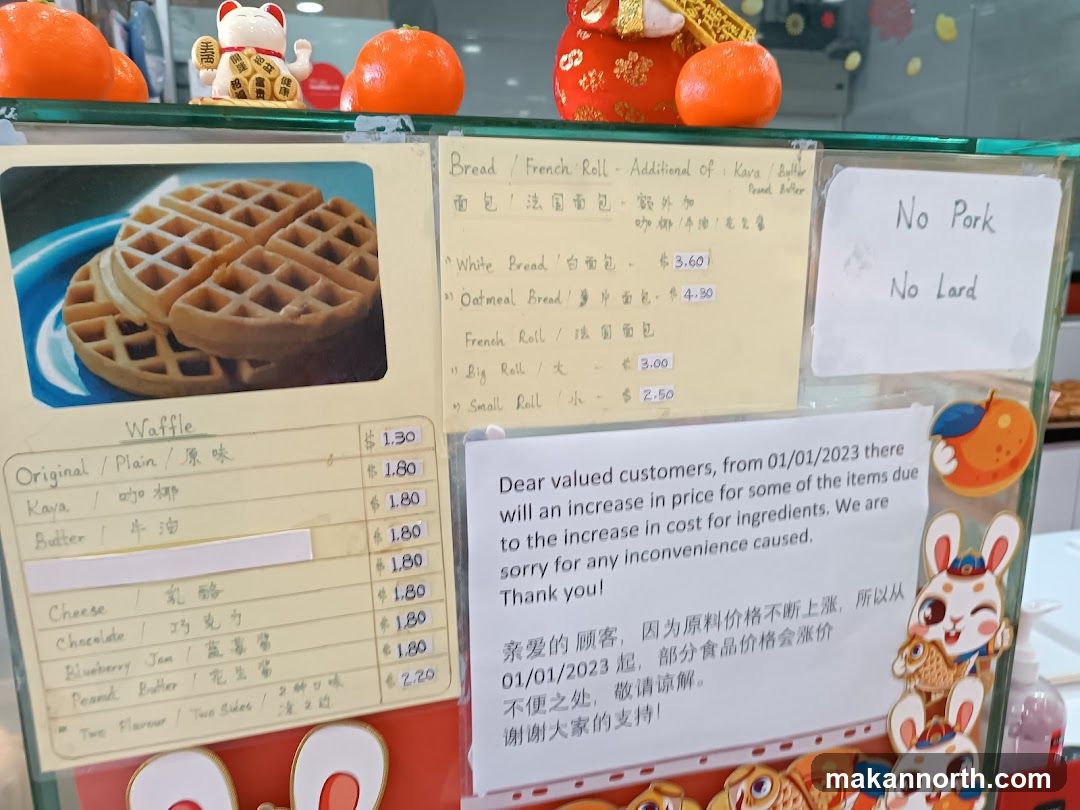 Waffle
Original / Plain / 原味 $ 1.30
Kaya / 咖椰 $ 1.80
Butter / 牛油 $ 1.80
$ 1.80
Cheese / 乳酪 $ 1.80
Chocolate / 巧克力 $ 1.80
Blueberry Jam / 蓝莓酱 $ 1.80
Peanut Butter / 花生酱 $ 1.80
Two Flavour / Two Sides / $ 2.20
Bread / French Roll - Additional of : Kaya / Butter
Peanut Butter
面包 / 法国面包 - 额外加
咖椰 / 牛油 / 花生酱
1) White Bread / 白面包 - $ 3.60
2) Oatmeal Bread / 麦片面包 - $ 4.30
French Roll / 法国面包
1) Big Roll / 大 - $ 3.00
2) Small Roll / 小 - $ 2.50
No Pork
No Lard
Dear valued customers, from 01/01/2023 there
will an increase in price for some of the items due
to the increase in cost for ingredients. We are
sorry for any inconvenience caused.
Thank you!
亲爱的 顾客， 因为原料价格不断上涨，所以从
01/01/2023 起，部分食品价格会涨价
不便之处，敬请谅解。
谢谢大家的支持！
makannorth.com